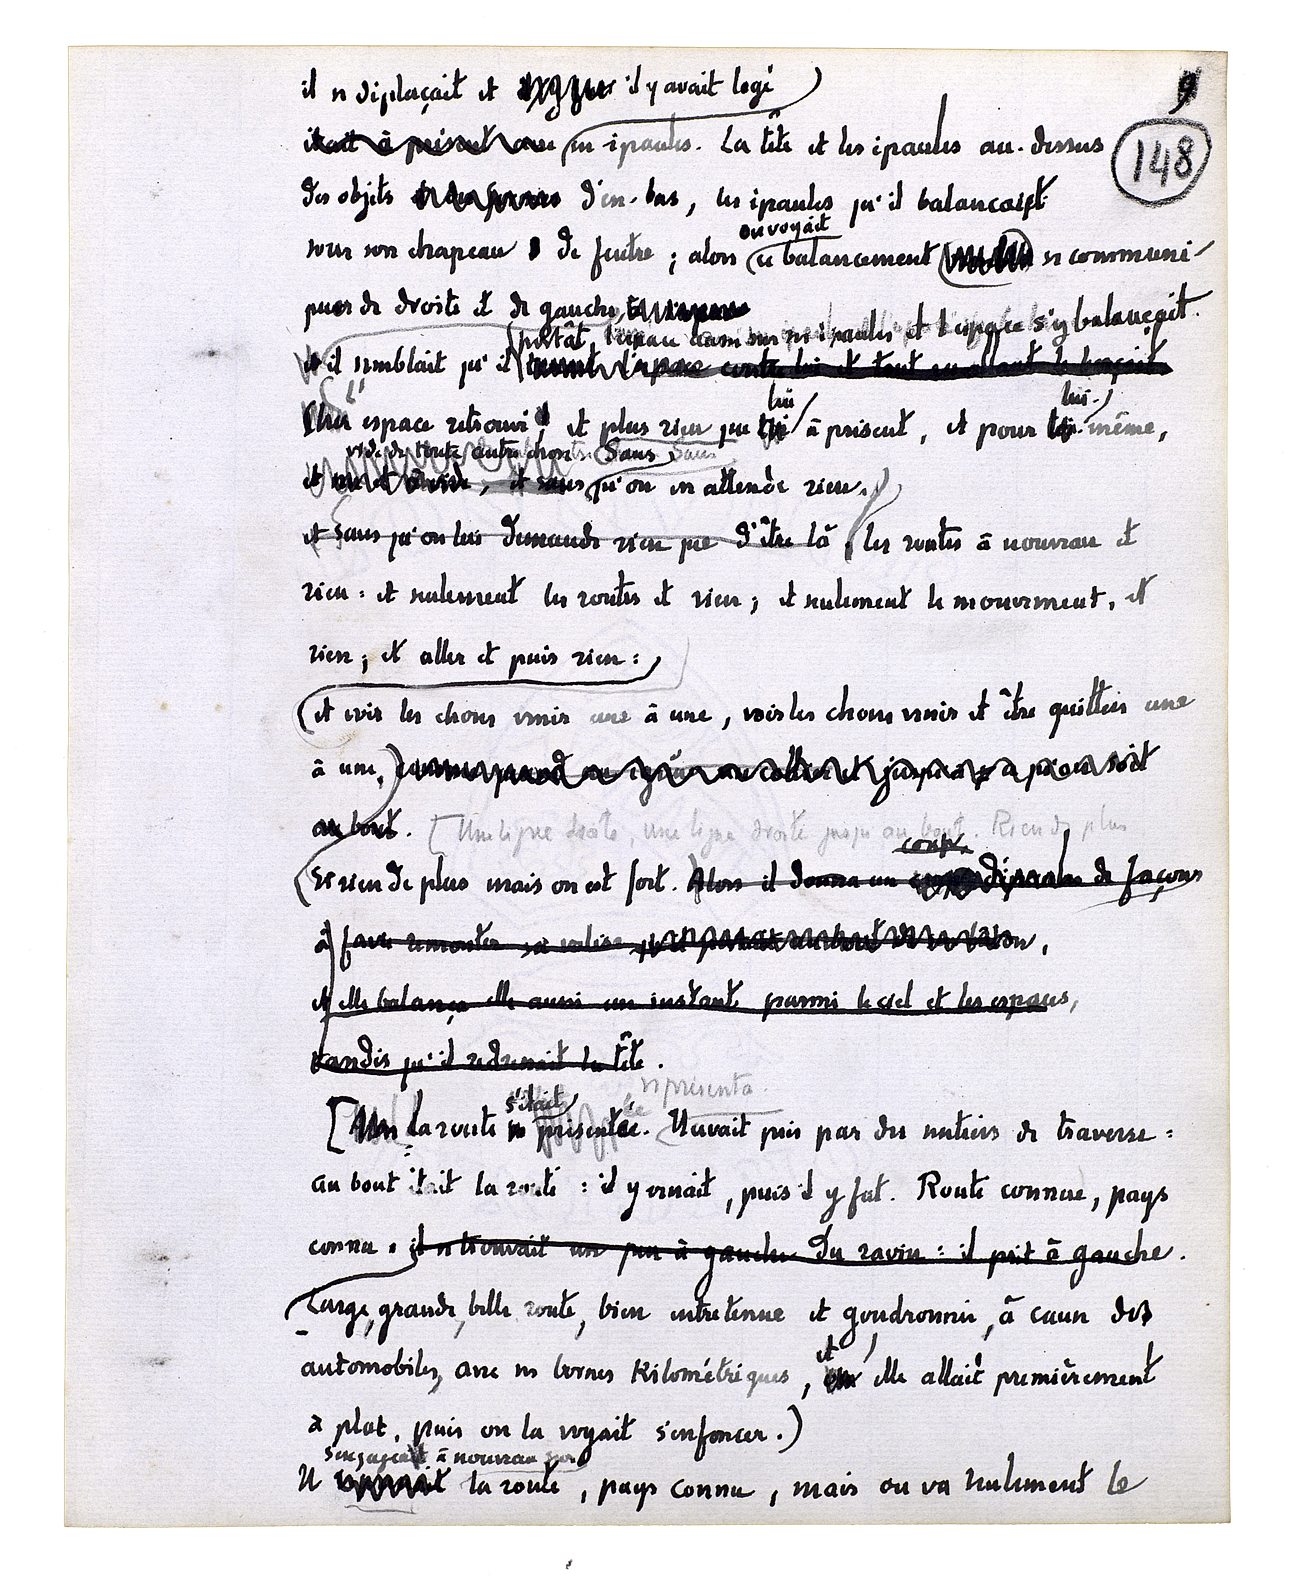 9
148
il se déplaçait et il y avait logé
était à présent avec ses épaules. La tête et les épaules au-dessus
des objets d'en-bas, les épaules qu'il balançait
on voyait
sous son chapeau de feutre ; alors ce balancement se communi-
quer de droite et de gauche,
portât, aussi sur ses épaules et l'espace s'y balançait.
et il semblait qu'il l'espace contre lui et tout en allant le berçait.
lui lui-
Cher espace retrouvé, et plus rien que à présent, et pour même,
vide de toute autre chose Sans
et , et sans qu'on en attende rien,
et sans qu'on lui demande rien que d'être là, les routes à nouveau et
rien : et seulement les routes et rien ; et seulement le mouvement, et
rien ; et aller et puis rien :
et voir les choses venir une à une, voir les choses venir et être quittées une
à une, jusqu'à ce soit
au bout. [Une ligne droite, une ligne droite jusqu'au bout. Rien de plus
coup
Et rien de plus mais on est fort. Alors il donna un d'épaules de façon
à faire remonter sa valise
et elle balança elle aussi un instant parmi le ciel et les espaces,
tandis qu'il redressait la tête.
se présenta.
s'était
[La route se présentée. Il avait pris par des sentiers de traverse :
au bout était la route : il y venait, puis il y fut. Route connue, pays
connu. il se trouvait un peu à gauche du ravin : il prit à gauche.
Large, grande, belle route, bien entretenue et goudronnée, à cause des
et
automobiles, avec ses bornes kilométriques, elle allait premièrement
à plat, puis on la voyait s'enfoncer.)
s'engageait à nouveau sur
Il la route, pays connu, mais on va seulement le